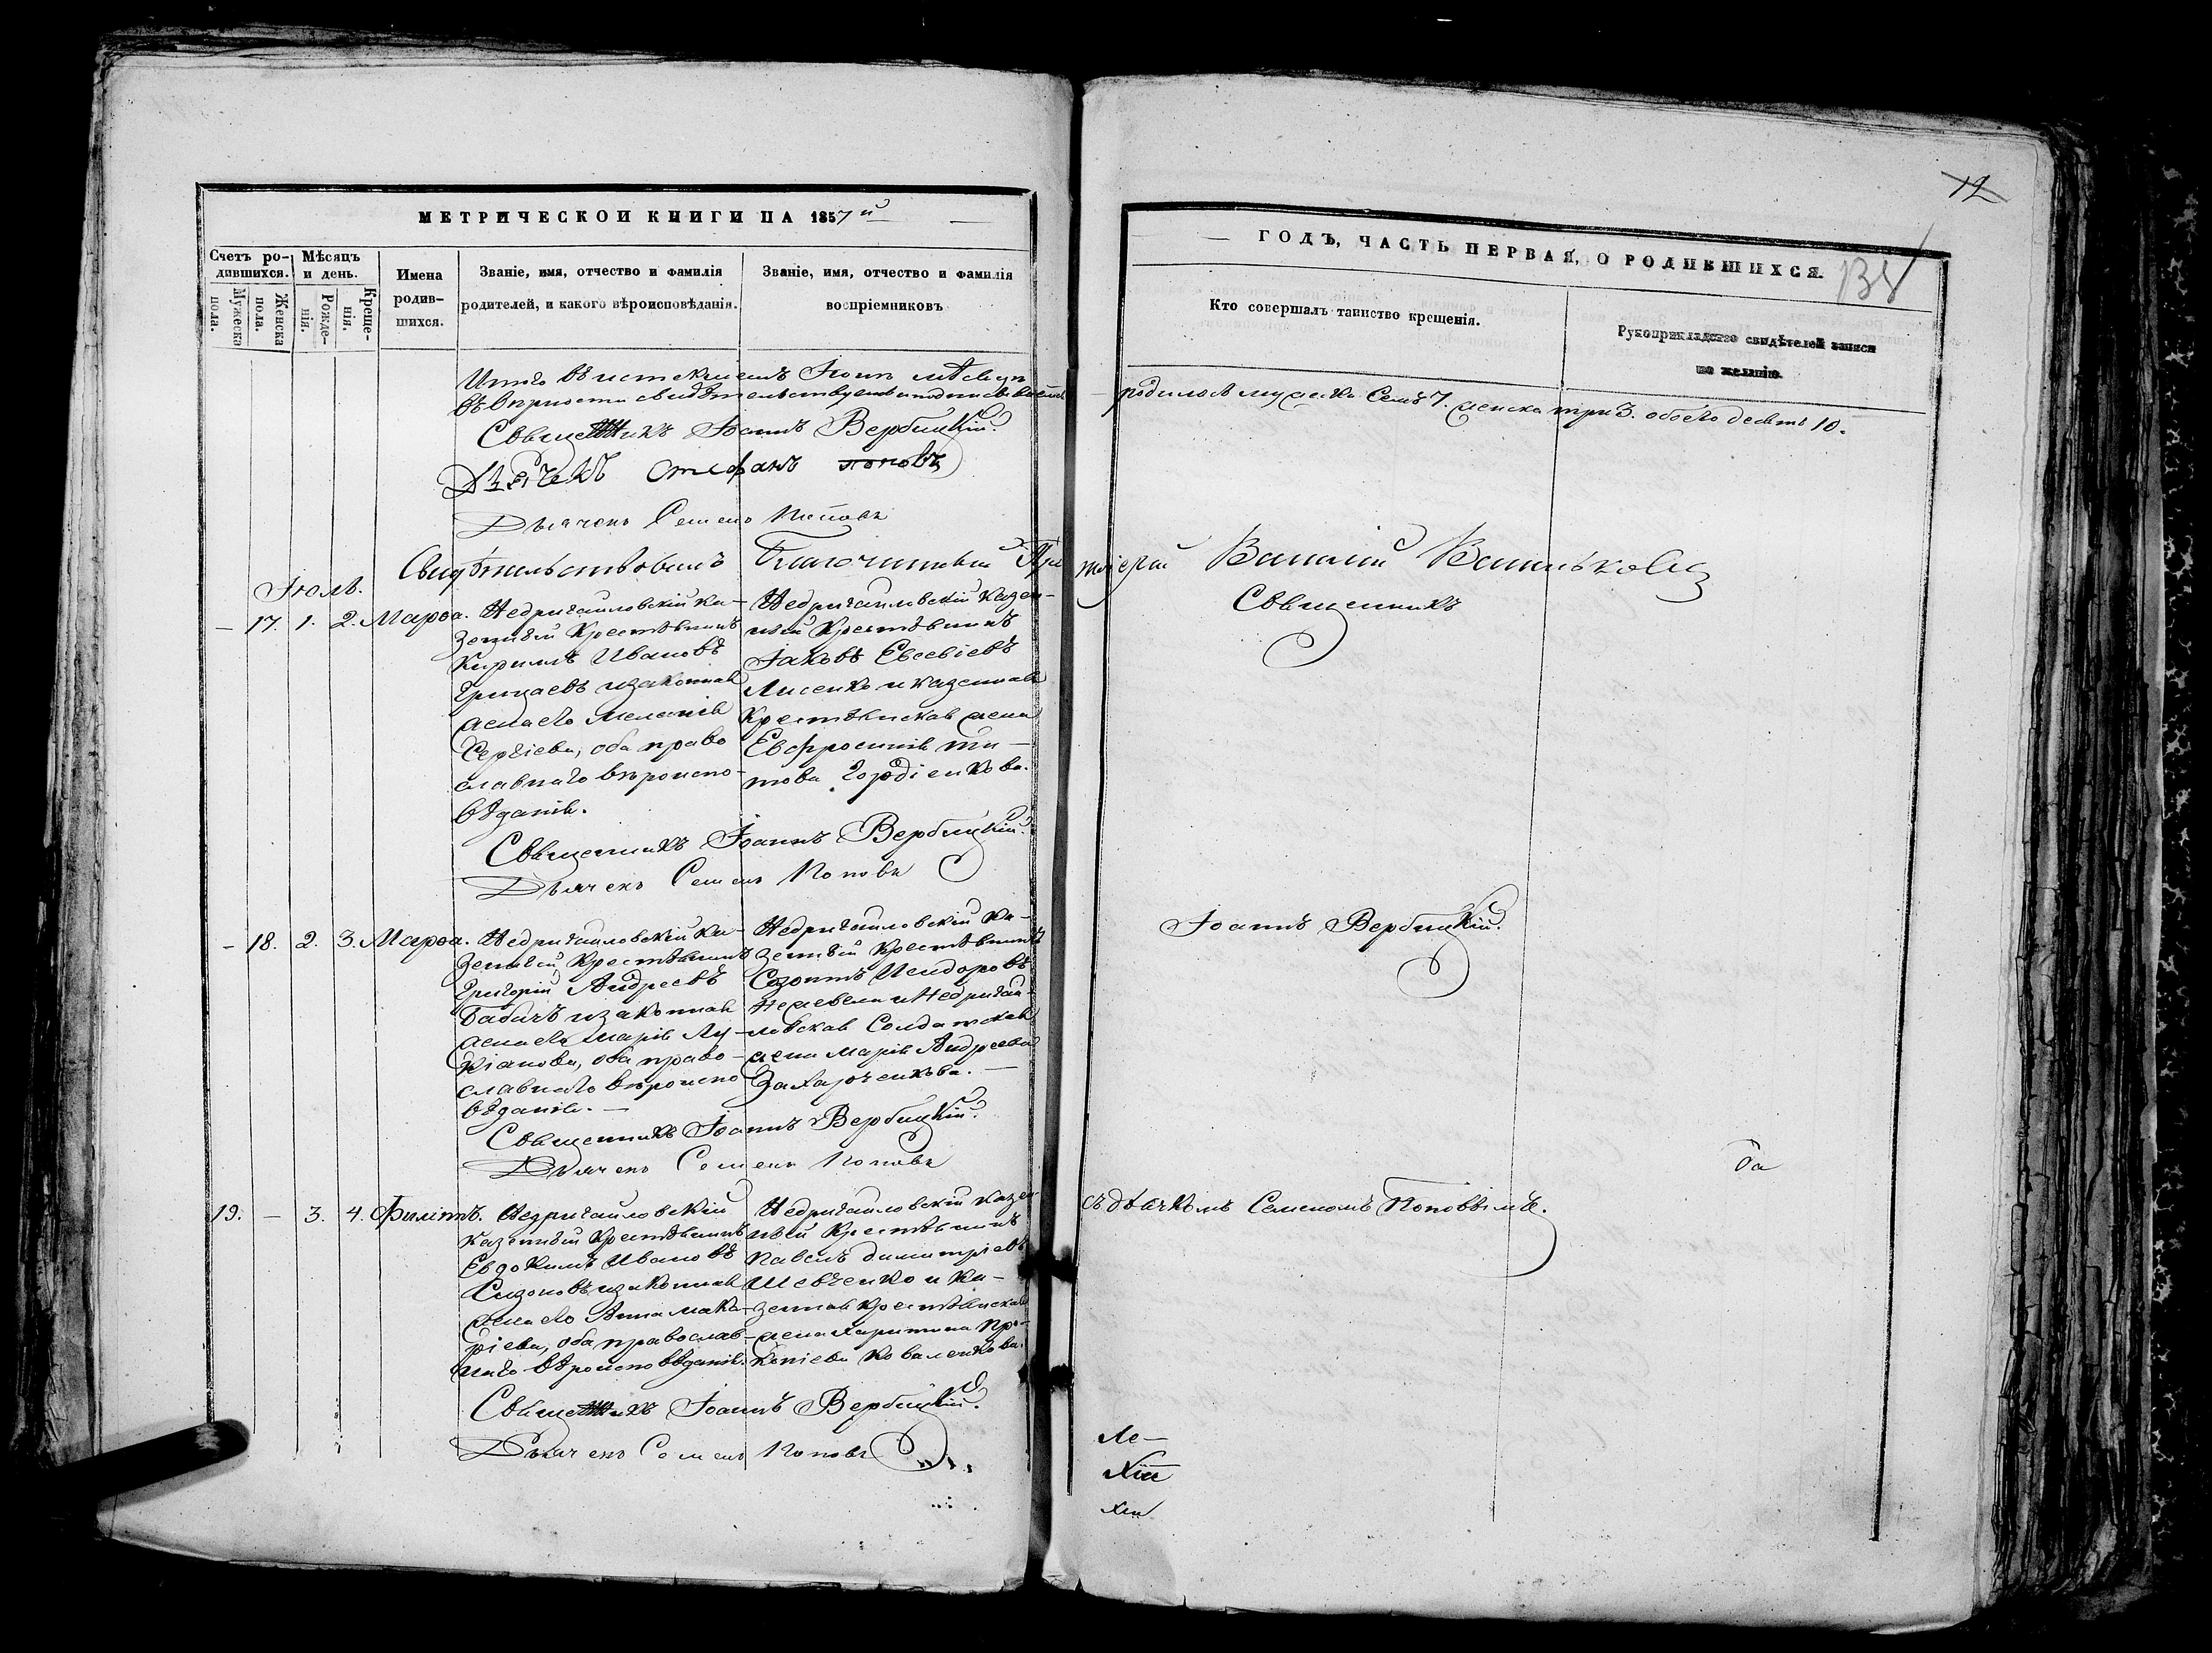 12
МЕТРИЧЕСКОЙ КНИГИ НА 1857й
ГОДЪ, ЧАСТЬ ПЕРВАЯ, О РОДИВШИХСЯ.
134
Счетъ ро-
дившихся.
Мужеска
пола.
Женска
пола.
Мѣсяцъ
и день.
Рожде-
нія.
Креще-
нія.
Имена
родив-
шихся.
Званіе, имя, отчество и фамилія
родителей, и какого вѣроисповѣданія.
Званіе, имя, отчество и фамилія
воспріемниковъ
Кто совершалъ таинство крещенія.
Рукоприкладство свидѣтелей записи
по желанію.
Итого въ истекшемъ Іюнѣ мѣсяцѣ родилось мужеска Семь 7. женска три 3. обоего десять 10.
въ вѣрности свидѣтельствуемъ и подписываемся
Священникъ Іоаннъ Вербицкій.
Дьячекъ стефанъ поповъ
Дьячекъ Семенъ Поповъ
Свидѣтельствовалъ Благочинный Протоіерей Василій
Священникъ
Іюль.
— 17. 1. 2. Марѳа.
Недригайловскій ка-
зенный Крестьянинъ
Кириллъ Ивановъ
Грицаевъ и законная
жена его Меланія
Сергіева, оба право
славнаго вѣроиспо-
вѣданія.
Недригайловскій Казен-
ный Крестьянинъ
Іаковъ Евсевіевъ
Лисенко и казенная
Крестьянская жена
Евфросинія Ти-
това Гордіенкова.
Священникъ Іоаннъ Вербицкій.
Дьячекъ Семенъ Поповъ
— 18. 2. 3. Марѳа.
Недригайловскій Ка-
зенный Крестьянинъ
Григорій Андреевъ
Бабичъ и законная
жена его Марія Лу-
кіанова, оба право-
славнаго вѣроиспо
вѣданія. —
Недригайловскій Ка-
зенный Крестьянинъ
Созонтъ Исидоровъ
и Недригай-
ловская Солдатская
жена Марія Андреева
Захарченкова. —
Іоаннъ Вербицкій.
Священникъ Іоаннъ Вербицкій.
Дьячекъ Семенъ Поповъ
19. — 3. 4. Филиппъ.
Недригайловскій
Казенный Крестьянинъ
Евдокимъ Ивановъ
Сизоновъ и законная
жена его Анна Мака-
ріева, оба православ-
наго вѣроисповѣданія.
Недригайловскій Казен
ный Крестьянинъ
Павелъ Димитріевъ
Шевченко и Ка-
зенная Крестьянская
жена Харитина Про-
копіева Коваленкова.
съ дьячкомъ Семеномъ Поповымъ.
Священникъ Іоаннъ Вербицкій.
Дьячекъ Семенъ Поповъ